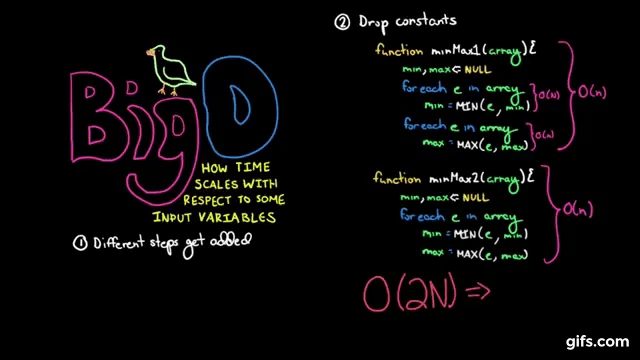 Big O
HOW TIME
SCALES WITH
RESPECT TO SOME
INPUT VARIABLES
① Different steps get added
② Drop constants
function minMax1(array){
min, max ← NULL
foreach e in array
min = MIN(e, min) } O(N)
foreach e in array
max = MAX(e, max) } O(N)
} O(n)
function minMax2(array){
min, max ← NULL
foreach e in array
min = MIN(e, min)
max = MAX(e, max)
} O(n)
O(2N) ⇒
gifs.com